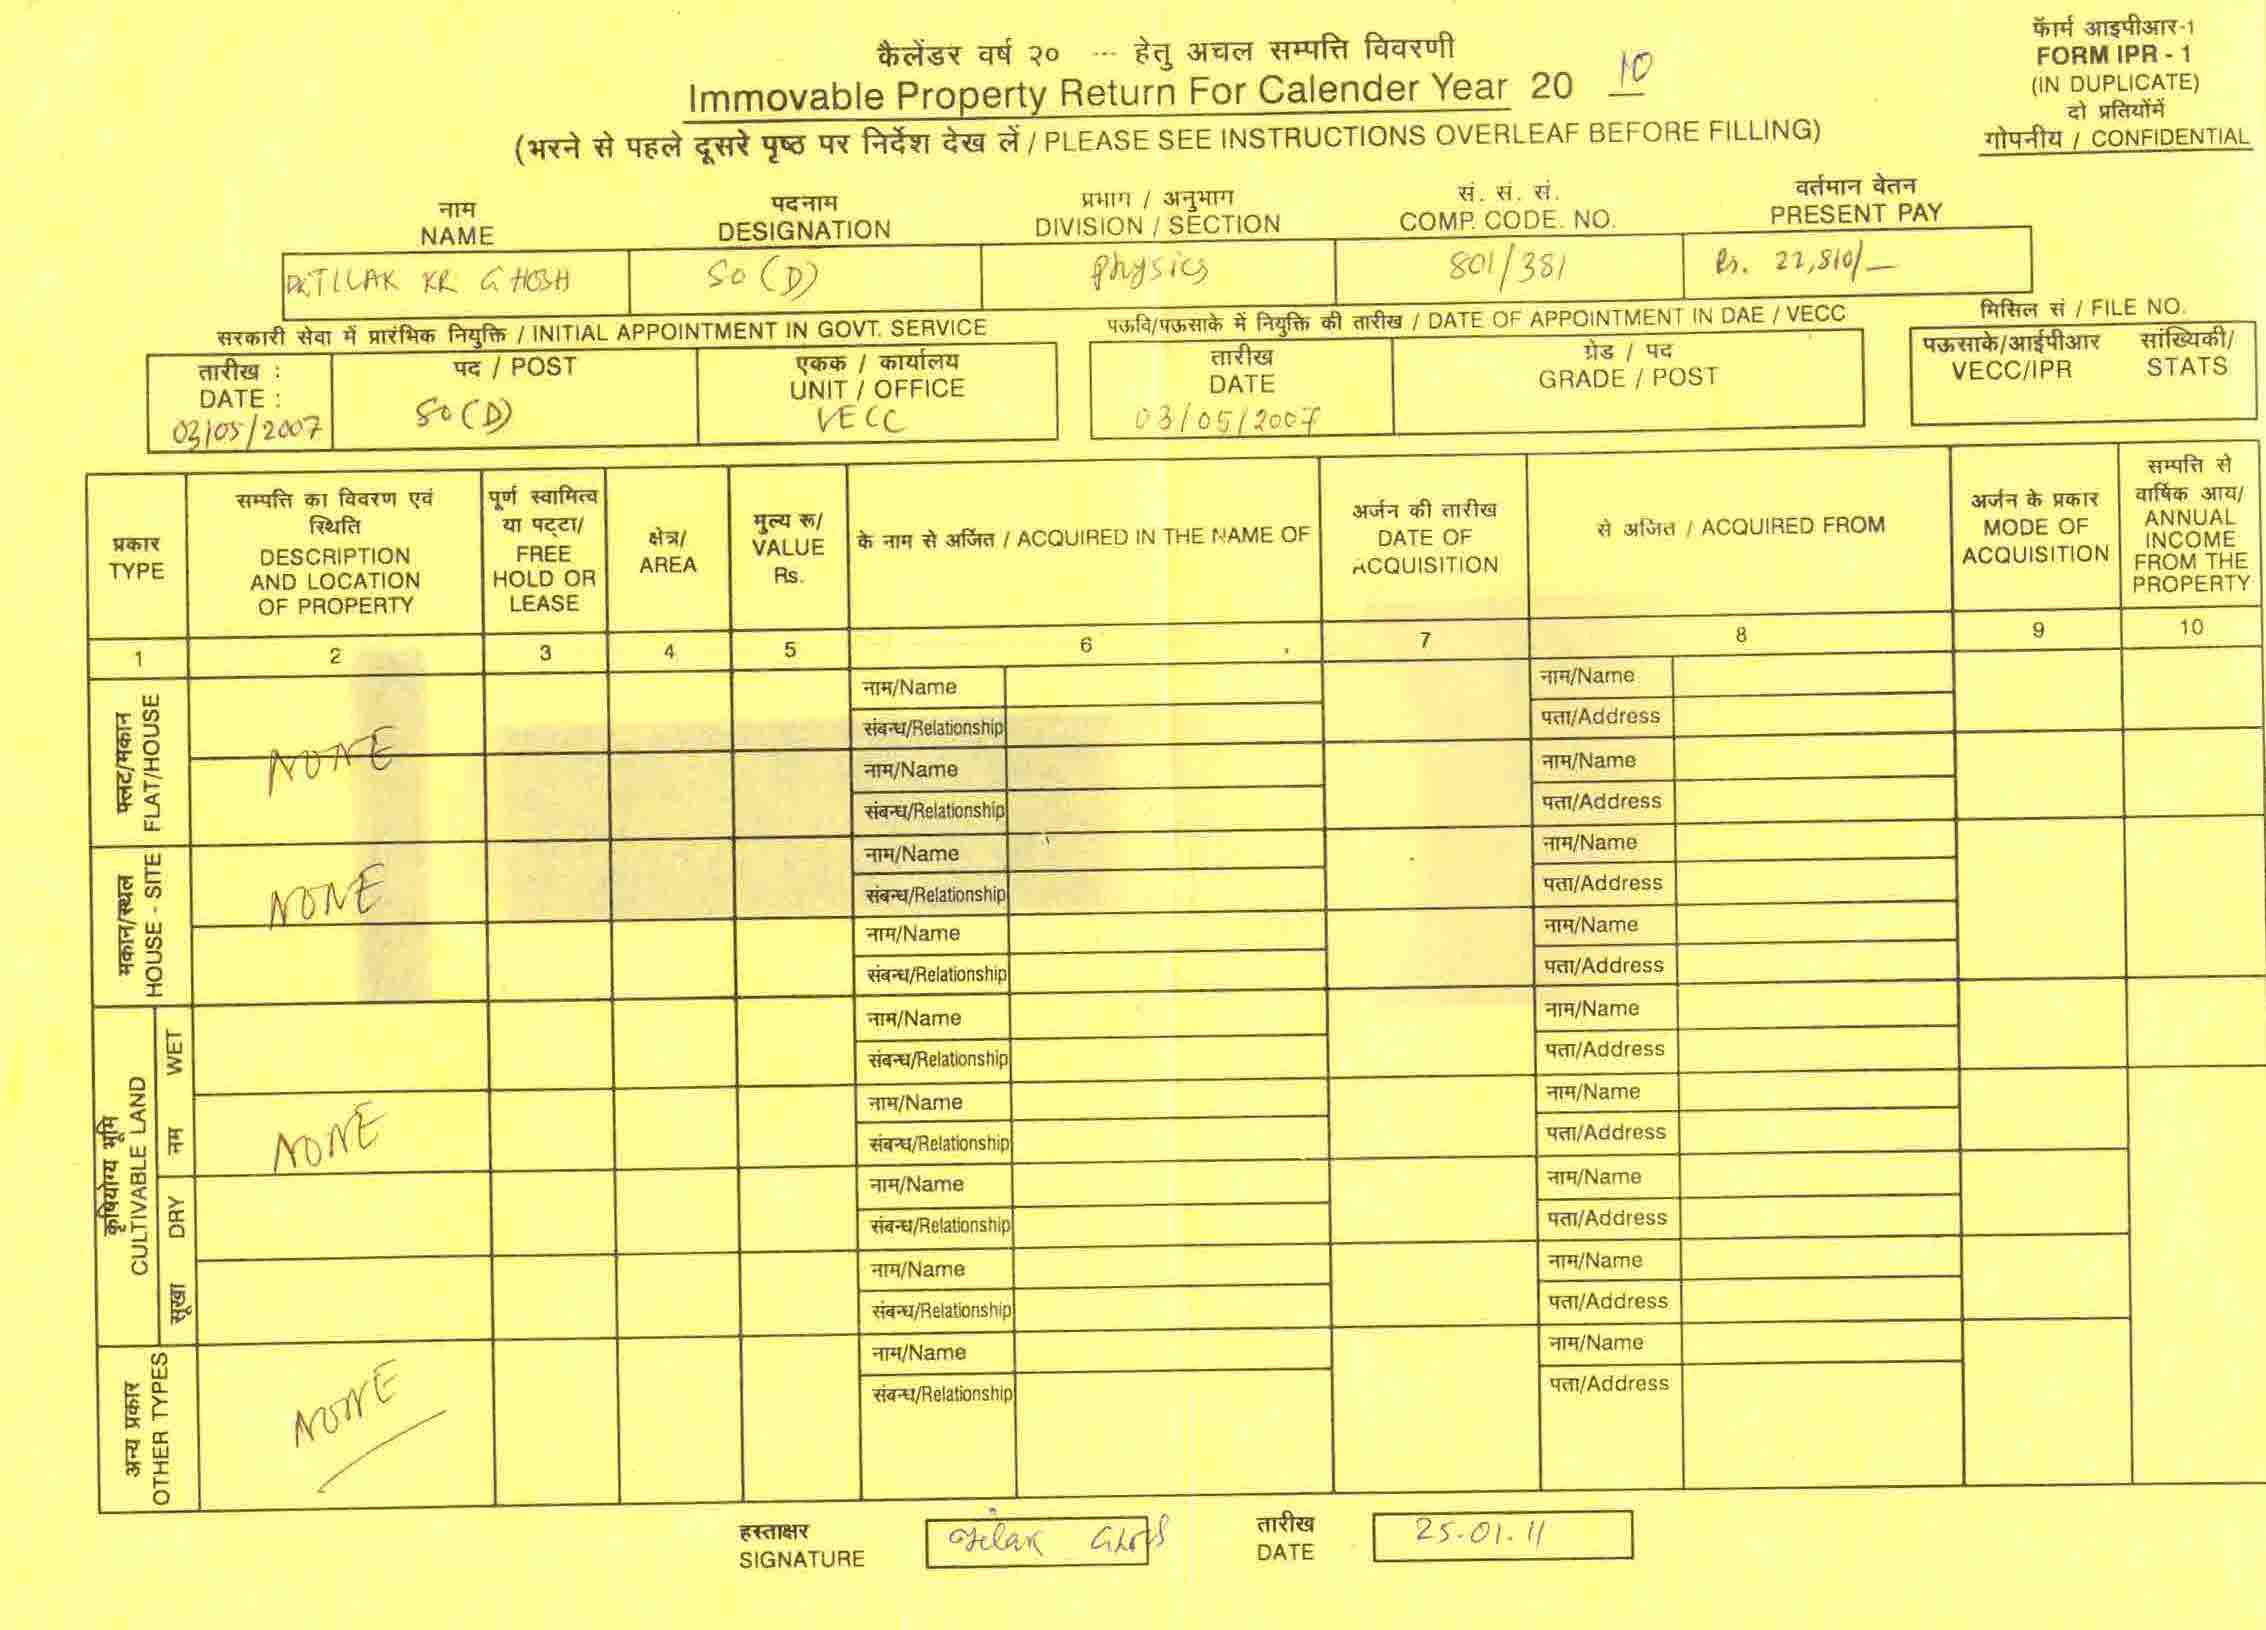 फॅार्म आइपीआर-1
FORM IPR - 1
(IN DUPLICATE)
दो प्रतियोंमें
गोपनीय / CONFIDENTIAL
कैलेंडर वर्ष २० --- हेतु अचल सम्पत्ति विवरणी
Immovable Property Return For Calender Year 20 10
(भरने से पहले दूसरे पृष्ठ पर निर्देश देख लें / PLEASE SEE INSTRUCTIONS OVERLEAF BEFORE FILLING)
नाम पदनाम प्रभाग / अनुभाग सं. सं. सं. वर्तमान वेतन
NAME DESIGNATION DIVISION / SECTION COMP. CODE. NO. PRESENT PAY
DR TILAK KR GHOSH SO (D) Physics 801/381 Rs. 22,810/-
सरकारी सेवा में प्रारंभिक नियुक्ति / INITIAL APPOINTMENT IN GOVT. SERVICE पऊवि/पऊसाके में नियुक्ति की तारीख / DATE OF APPOINTMENT IN DAE / VECC मिसिल सं / FILE NO.
तारीख : पद / POST एकक / कार्यालय तारीख ग्रेड / पद पऊसाके/आईपीआर सांख्यिकी/
DATE : UNIT / OFFICE DATE GRADE / POST VECC/IPR STATS
03/05/2007 SO (D) VECC 03/05/2007
प्रकार
TYPE
सम्पत्ति का विवरण एवं
स्थिति
DESCRIPTION
AND LOCATION
OF PROPERTY
पूर्ण स्वामित्व
या पट्टा/
FREE
HOLD OR
LEASE
क्षेत्र/
AREA
मुल्य रू/
VALUE
Rs.
के नाम से अर्जित / ACQUIRED IN THE NAME OF
अर्जन की तारीख
DATE OF
ACQUISITION
से अर्जित / ACQUIRED FROM
अर्जन के प्रकार
MODE OF
ACQUISITION
सम्पत्ति से
वार्षिक आय/
ANNUAL
INCOME
FROM THE
PROPERTY
1 2 3 4 5 6 7 8 9 10
फ्लट/मकान
FLAT/HOUSE
NONE
नाम/Name नाम/Name
संबन्ध/Relationship पता/Address
नाम/Name नाम/Name
संबन्ध/Relationship पता/Address
मकान/स्थल
HOUSE - SITE
NONE
नाम/Name नाम/Name
संबन्ध/Relationship पता/Address
नाम/Name नाम/Name
संबन्ध/Relationship पता/Address
कृषियोग्य भूमि
CULTIVABLE LAND
नम WET
NONE
नाम/Name नाम/Name
संबन्ध/Relationship पता/Address
नाम/Name नाम/Name
संबन्ध/Relationship पता/Address
सूखा DRY
नाम/Name नाम/Name
संबन्ध/Relationship पता/Address
नाम/Name नाम/Name
संबन्ध/Relationship पता/Address
अन्य प्रकार
OTHER TYPES
NONE
नाम/Name नाम/Name
संबन्ध/Relationship पता/Address
हस्ताक्षर तारीख
SIGNATURE Tilak Ghosh DATE 25.01.11